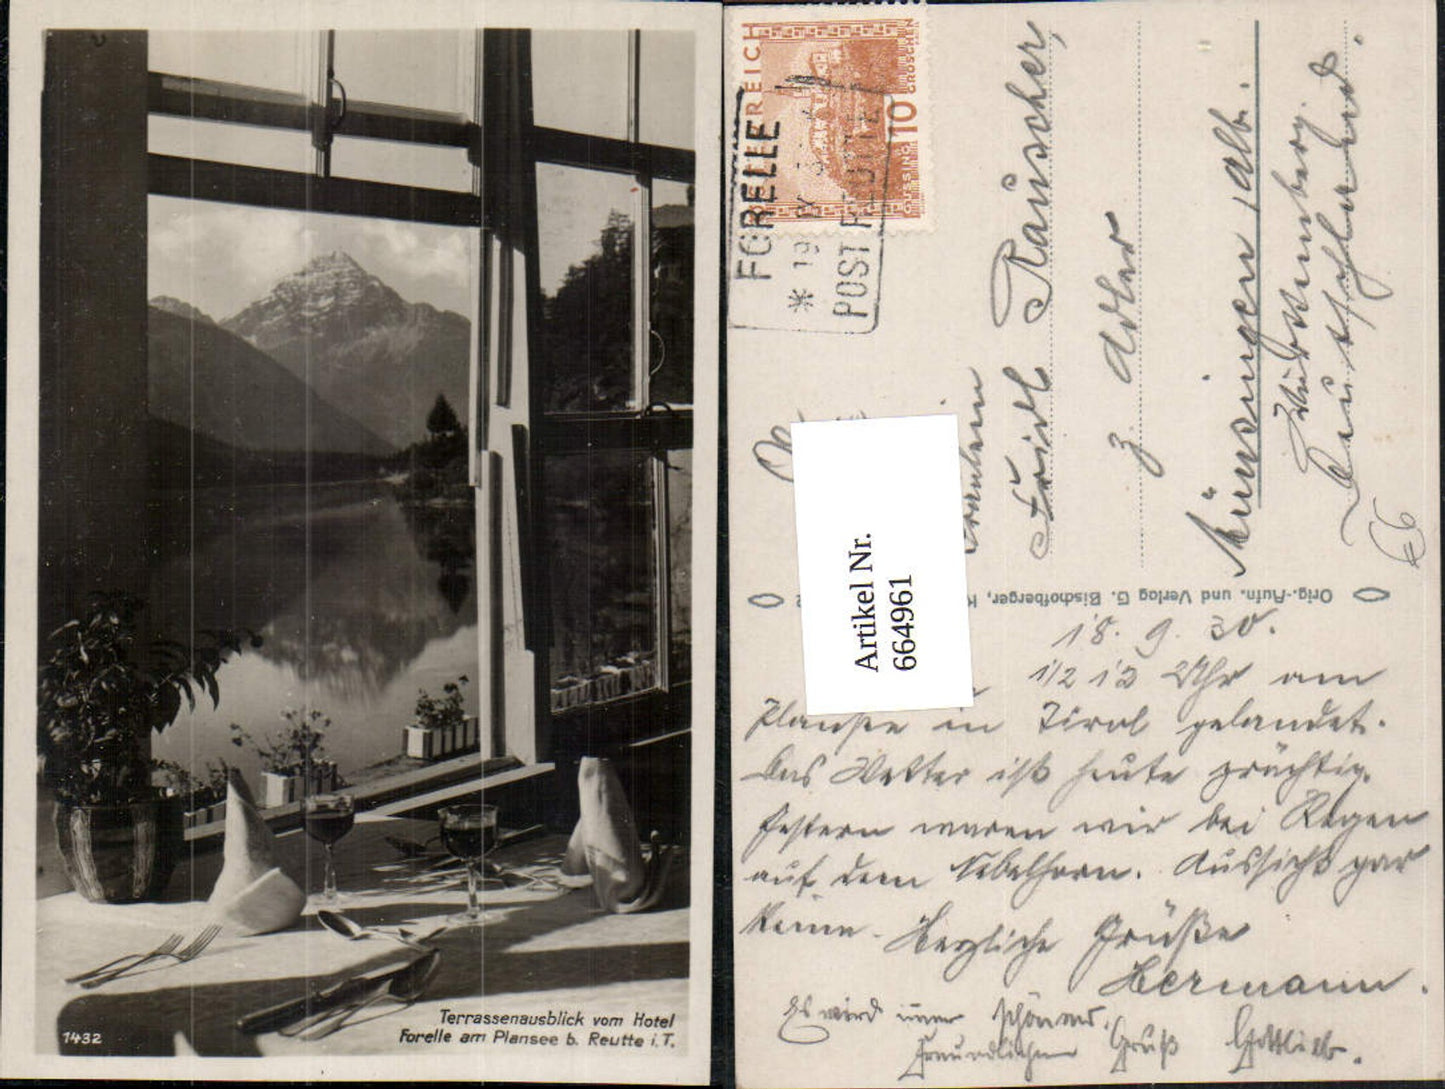 Terrassenausblick vom Hotel
Forelle am Plansee b. Reutte i.T.
1432
ÖSTERREICH
10 GROSCHEN
GÜSSING
FORELLE
* 19 IX
POST REUTTE
Artikel Nr.
664961
Fräulein
Fridl Rauscher,
z. Adler
Münsingen / Alb.
Württemberg.
Deutschland.
Orig.-Aufn. und Verlag G. Bischofberger,
18. 9. 30.
1/2 12 Uhr am
Plansee in Tirol gelandet.
Das Wetter ist heute prächtig.
Gestern waren wir bei Regen
auf dem Nebelhorn. Aussicht gar
keine. Herzliche Grüße
Hermann.
Es wird immer schöner.
Freundlichen Gruß Gottlieb.